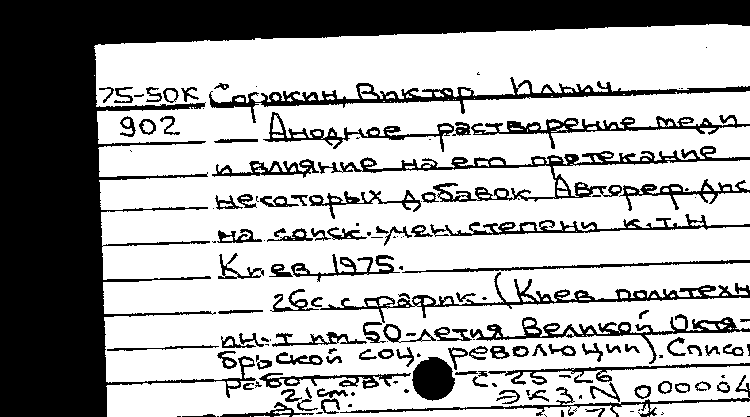 75-50К Сорокин, Виктор Ильич.
902 Анодное растворение меди
и влияние на его протекание
некоторых добавок. Автореф. дис
на соиск. учен. степени к.т.н
Киев, 1975.
26с. с график. (Киев. политехн
ин-т им. 50-летия Великой Октя-
брьской соц. революции). Список
работ авт. с. 25-26
21см.
ЭКЗ. N 00004